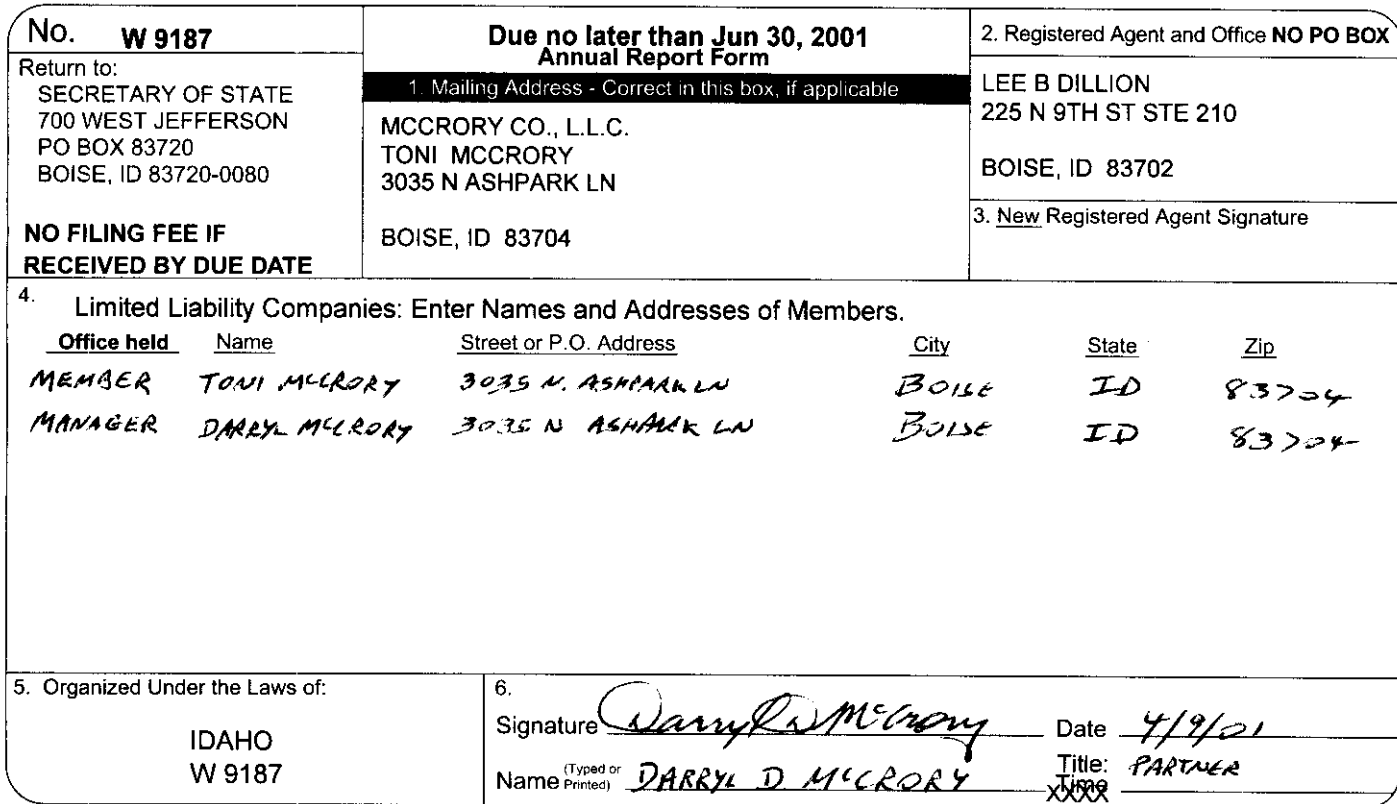 No. W 9187
Return to:
SECRETARY OF STATE
700 WEST JEFFERSON
PO BOX 83720
BOISE, ID 83720-0080
NO FILING FEE IF
RECEIVED BY DUE DATE
Due no later than Jun 30, 2001
Annual Report Form
1. Mailing Address - Correct in this box, if applicable
MCCRORY CO., L.L.C.
TONI MCCRORY
3035 N ASHPARK LN
BOISE, ID 83704
2. Registered Agent and Office NO PO BOX
LEE B DILLION
225 N 9TH ST STE 210
BOISE, ID 83702
3. New Registered Agent Signature
4. Limited Liability Companies: Enter Names and Addresses of Members.
Office held Name Street or P.O. Address City State Zip
MEMBER TONI MCCRORY 3035 N. ASHPARK LN BOISE ID 83704
MANAGER DARRYL MCCRORY 3035 N ASHPARK LN BOISE ID 83704
5. Organized Under the Laws of:
IDAHO
W 9187
6.
Signature Darryl D McCrory Date 4/9/01
Name (Typed or Printed) DARRYL D. MCCRORY Title: PARTNER